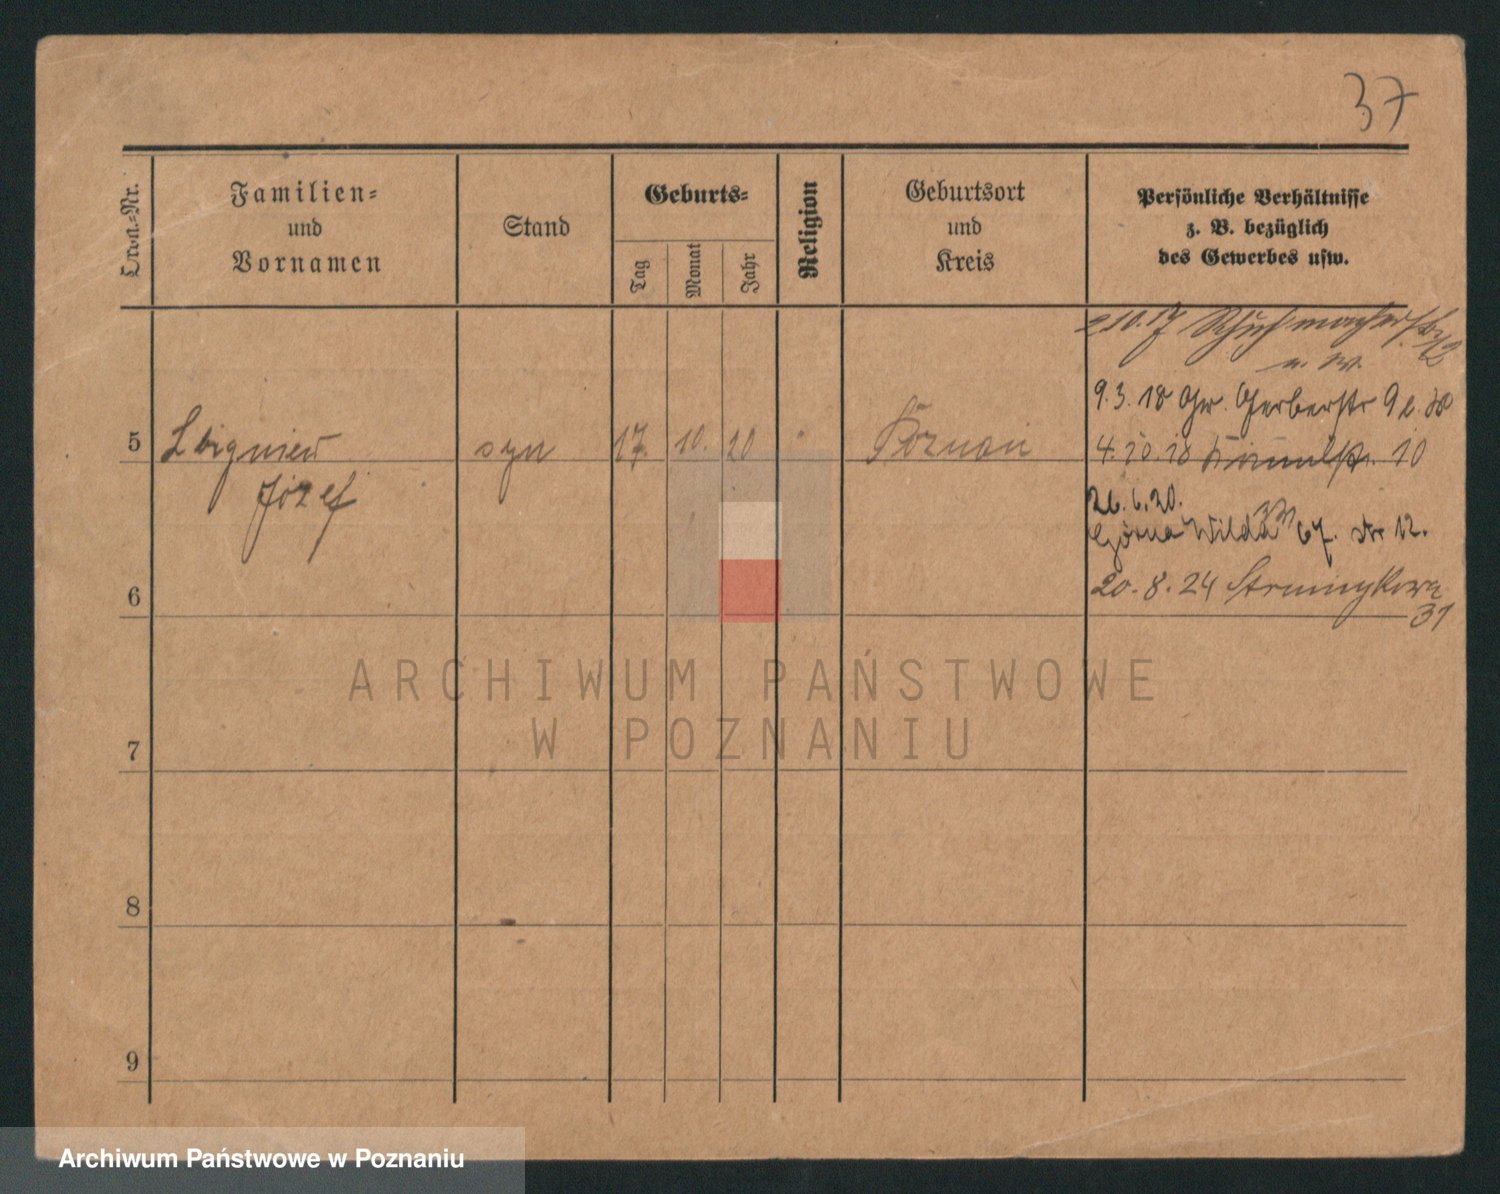 37
Ordn.=Nr.
Familien=
und
Vornamen
Stand
Geburts=
Tag
Monat
Jahr
Religion
Geburtsort
und
Kreis
Persönliche Verhältnisse
z. B. bezüglich
des Gewerbes usw.
2 10. 17 Schuhmacherstr 12
u. W.
9. 3. 18 Gr. Gerberstr 9
5 Zbigniew syn 17. 10. 20 Poznań
4. 10. 18 10
Józef
26. 6. 20.
Górna Wilda 67. 12.
20. 8. 24 Strumykowa
6
31
ARCHIWUM PAŃSTWOWE
W POZNANIU
7
8
9
Archiwum Państwowe w Poznaniu